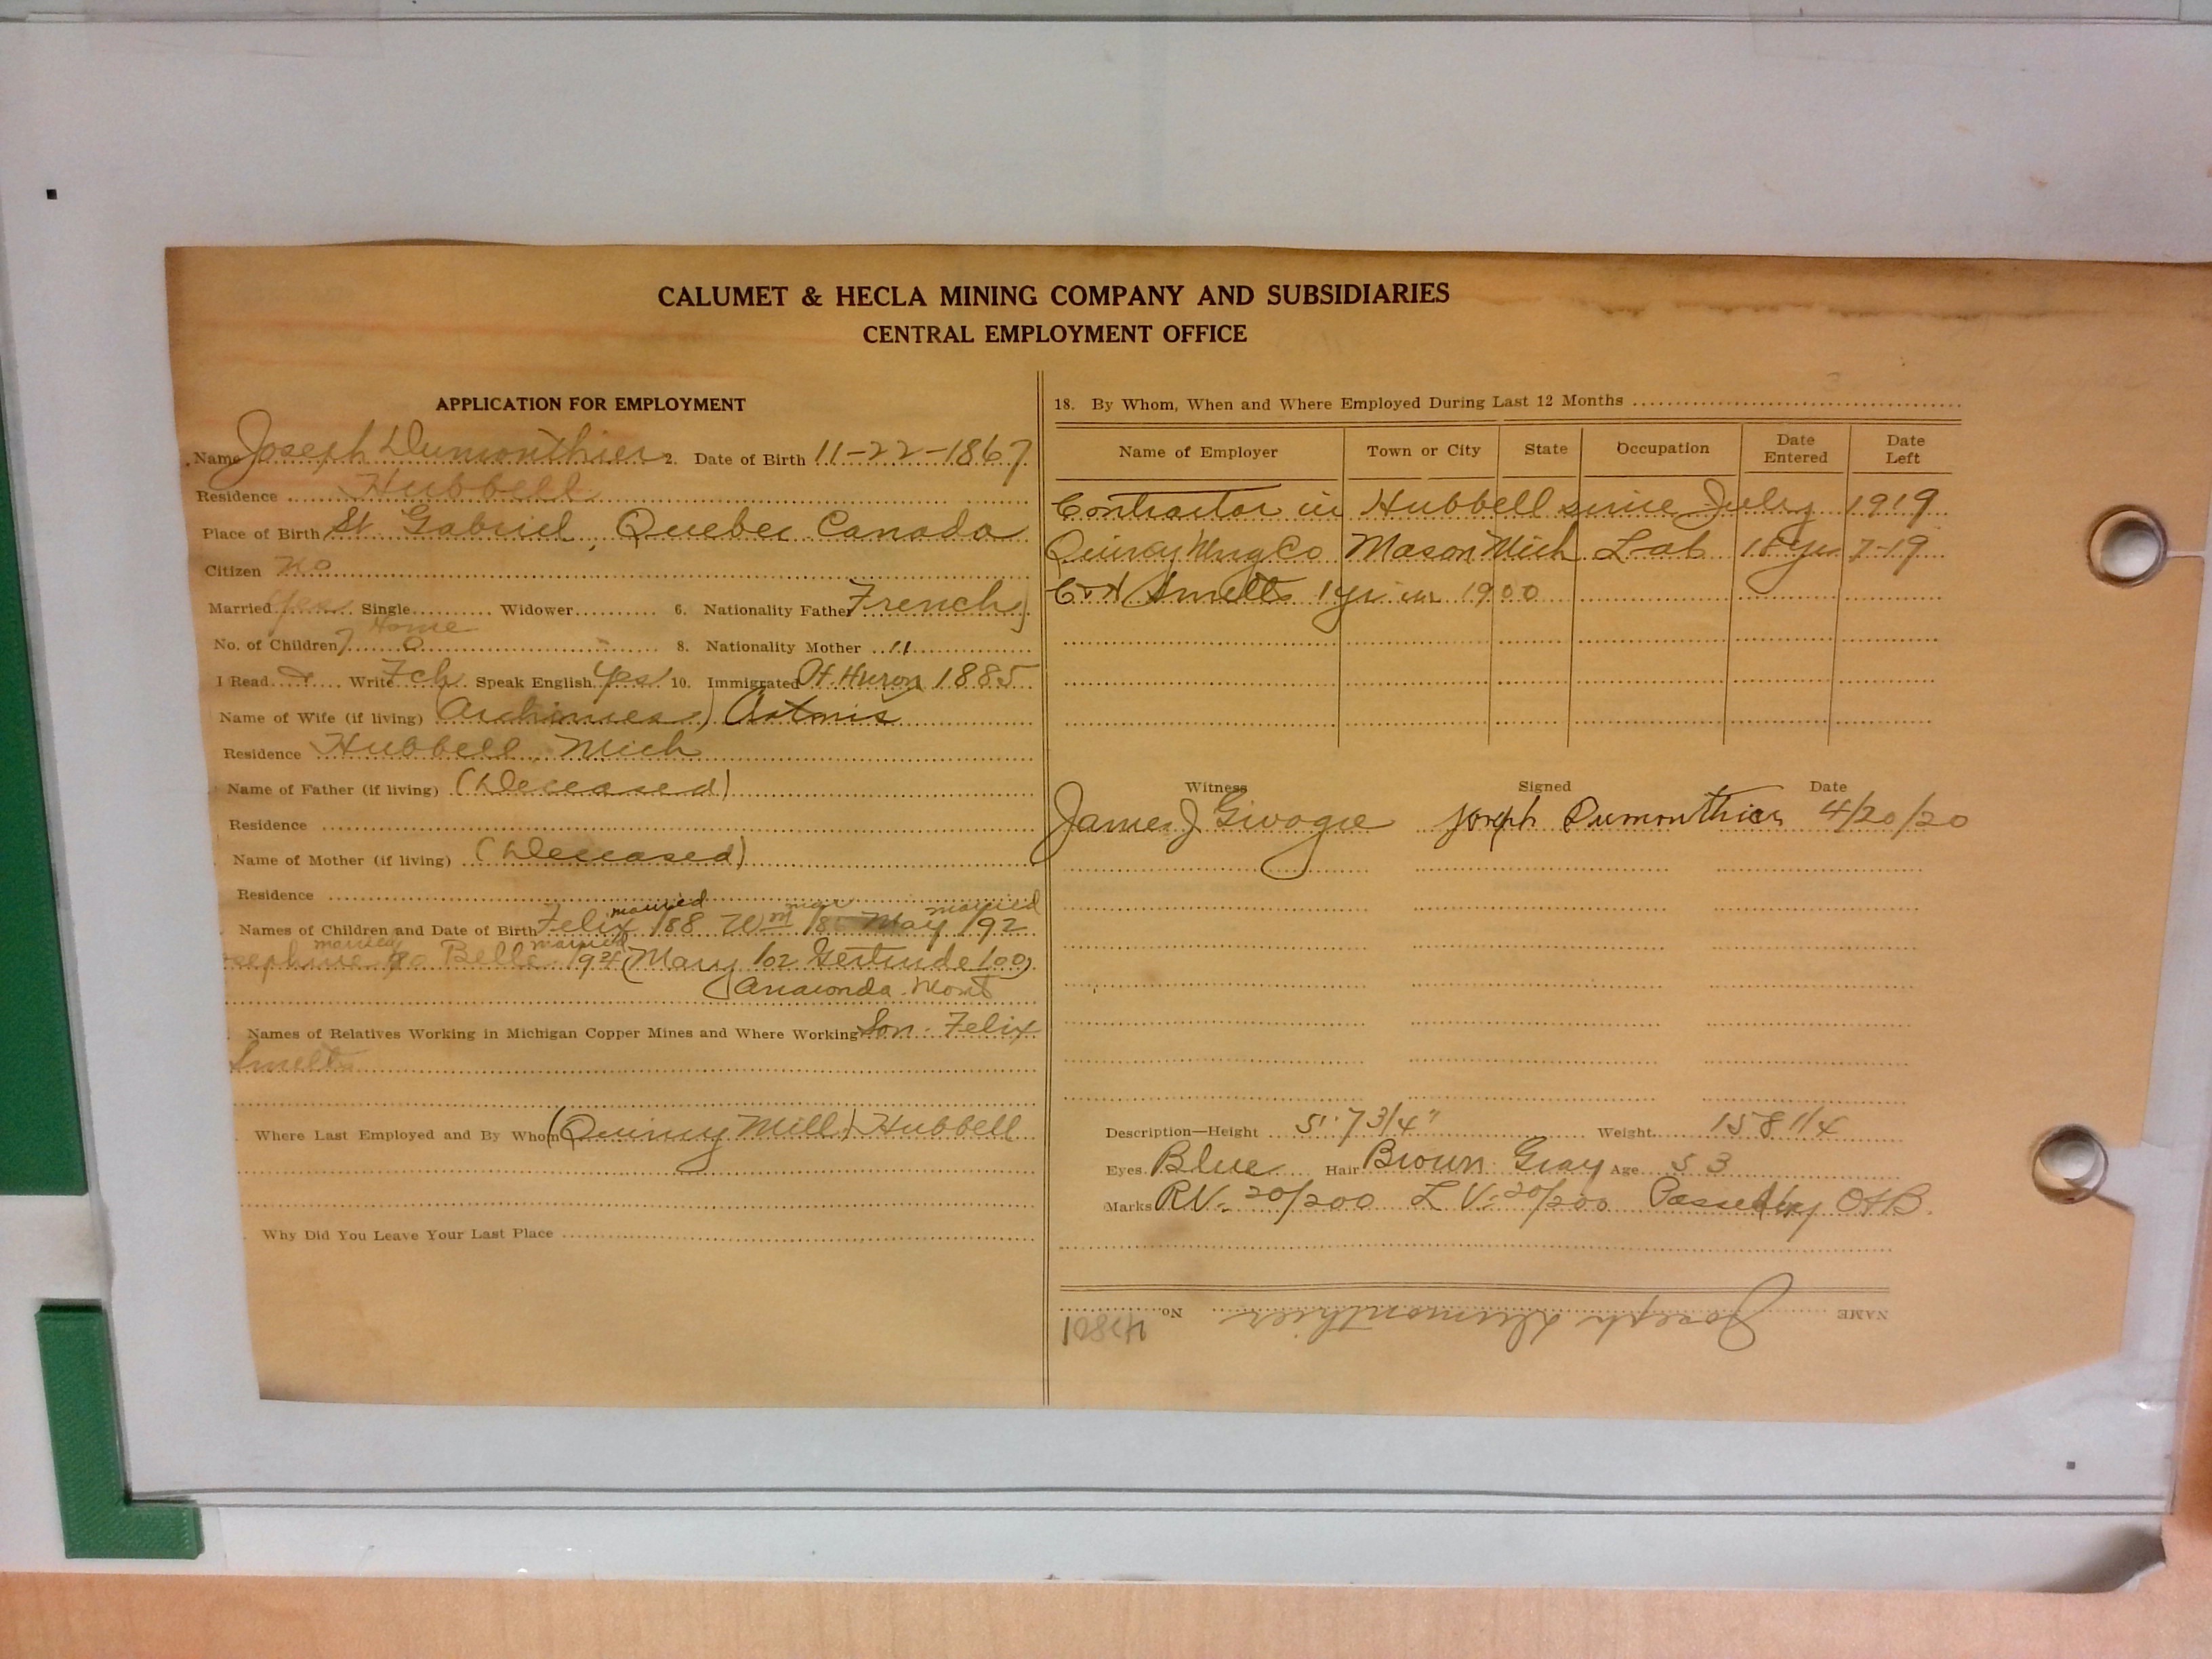 CALUMET & HECLA MINING COMPANY AND SUBSIDIARIES
CENTRAL EMPLOYMENT OFFICE
APPLICATION FOR EMPLOYMENT
Name Joseph Dumonthier 2. Date of Birth 11-22-1867
Residence Hubbell
Place of Birth St Gabriel, Quebec Canada
Citizen No
Married Yes Single Widower 6. Nationality Father French
Home
No. of Children 7 0 8. Nationality Mother 11
I Read Write Fch Speak English Yes 10. Immigrated Pt Huron 1885
Name of Wife (if living)
Residence Hubbell, Mich
Name of Father (if living) (Deceased)
Residence
Name of Mother (if living) (Deceased)
Residence
married mar married
Names of Children and Date of Birth Felix 188 Wm May 192
married married
Belle 194 (Mary 102 Gertrude 100)
Anaconda Mont
Names of Relatives Working in Michigan Copper Mines and Where Working Son - Felix
Smelts
Where Last Employed and By Whom (Quincy Mill) Hubbell
Why Did You Leave Your Last Place
18. By Whom, When and Where Employed During Last 12 Months
Name of Employer Town or City State Occupation Date Entered Date Left
Contractor in Hubbell since July 1919
Quincy Mng Co Mason Mich Lab Yrs 7-19
C&H Smelts 1 yr in 1900
Witness Signed Date
James J Givogre Joseph Dumonthier 4/20/20
Description—Height 5' 7 3/4" Weight 158 1/4
Eyes Blue Hair Brown Gray Age 53
Marks RV- 20/200 LV- 20/200 Passed by
NAME Joseph Dumonthier No.